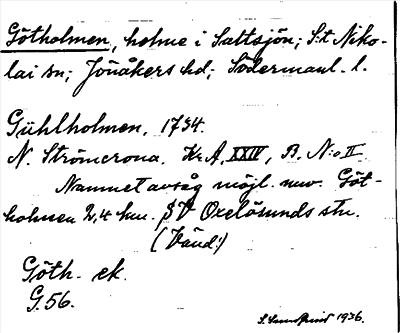 Götholmen, holme i Saltsjön; S:t Niko-
lai sn; Jönåkers hd; Södermanl. l.
Gühlholmen, 1734.
N. Strömcrona. Kr.A. XXIV, B. N:o II
Namnet avsåg möjl. nuv. Göt-
holmen 2,4 km. SV Oxelösunds stn.
(Vänd!)
Göth. ek.
G. 56.
S. 1936.